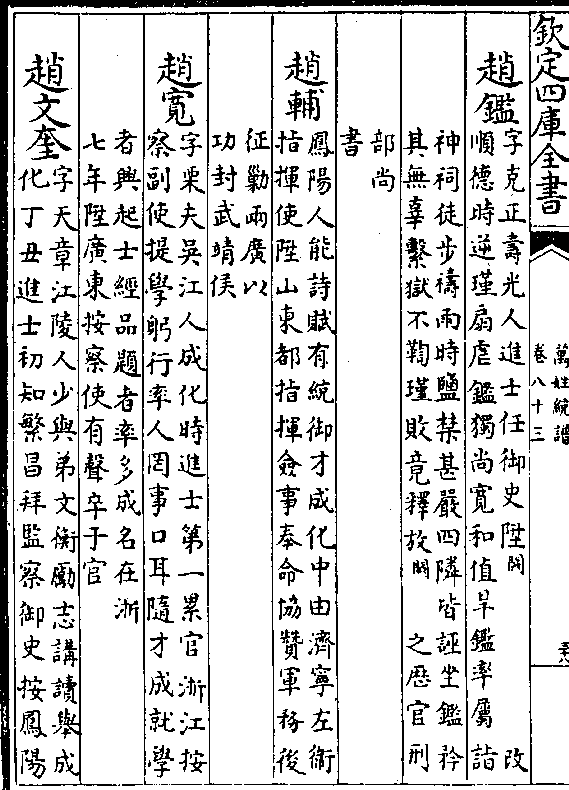 欽定四庫全書
萬姓統譜
卷八十三
趙鑑 字克正壽光人進士任御史陞闕 改
順德時逆瑾扇虐鑑獨尚寛和值旱鑑率屬詣
神祠徒步禱雨時鹽禁甚嚴四隣皆誣坐鑑矜
其無辜繫獄不鞫瑾敗竟釋放闕 之歴官刑
部尚
書
趙輔 鳳陽人能詩賦有統御才成化中由濟寧左衛
指揮使陞山東都指揮僉事奉命協贊軍務後
征勦兩廣以
功封武靖侯
趙寛 字栗夫吳江人成化時進士第一累官浙江按
察副使提學躬行率人罔事口耳隨才成就學
者興起士經品題者率多成名在浙
七年陞廣東按察使有聲卒于官
趙文奎 字天章江陵人少與弟文衡勵志講讀舉成
化丁丑進士初知繁昌拜監察御史按鳳陽